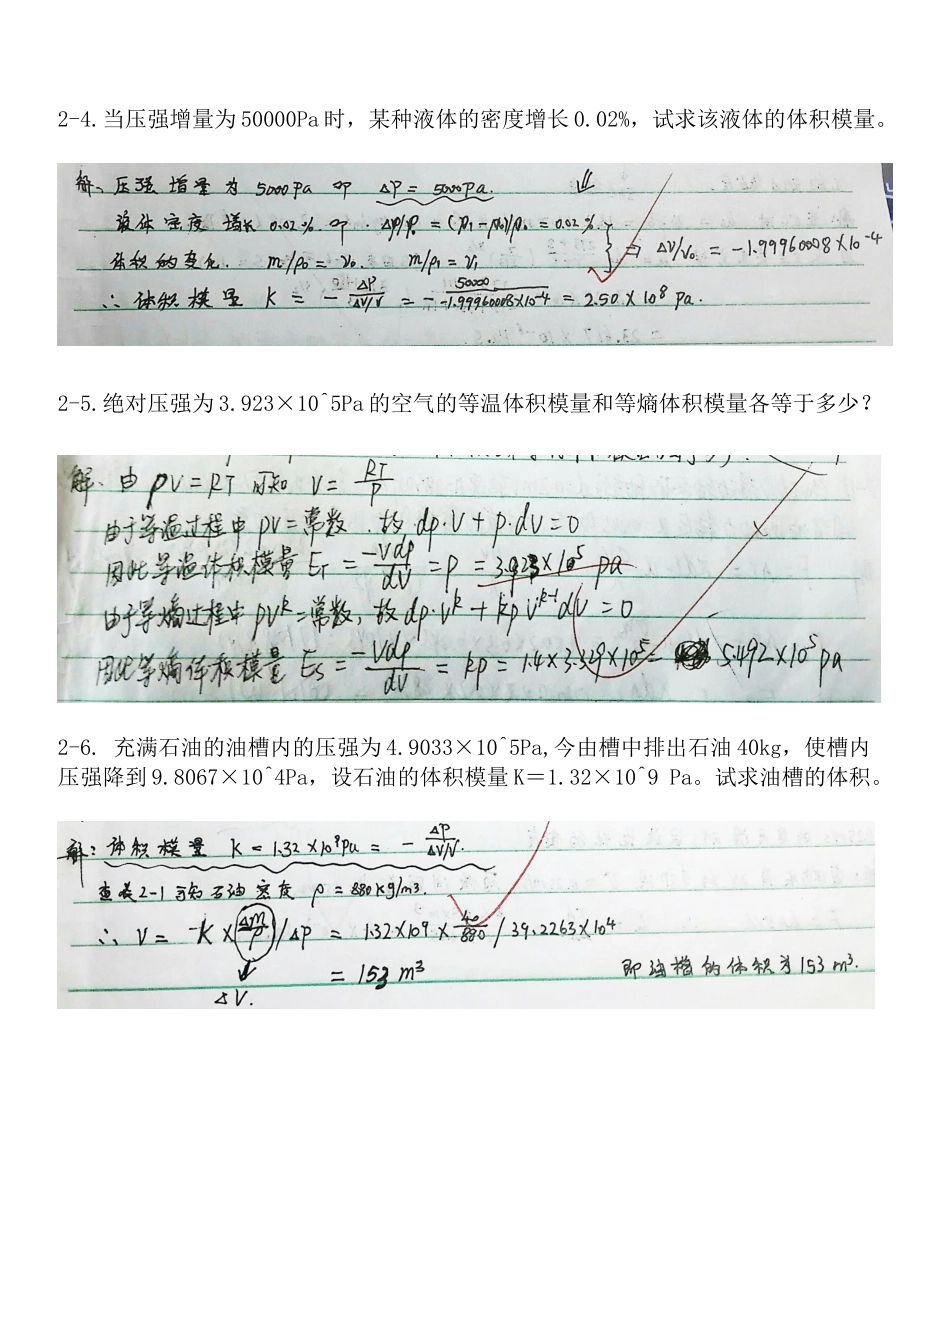 2-4.当压强增量为50000Pa时，某种液体的密度增长0.02%，试求该液体的体积模量。
解、压强增量为 5000Pa 即 ΔP = 5000Pa.
液体密度增长 0.02% 即 Δρ/ρ. = (ρ₁-ρ₀)/ρ₀ = 0.02%.
体积的变化. m/ρ₀ = v₀. m/ρ₁ = v₁ ⇒ ΔV/V₀ = -1.99960008×10⁻⁴
∴ 体积模量 K = - ΔP/(ΔV/V) = - 50000/(-1.99960008×10⁻⁴) = 2.50×10⁸ Pa.
2-5.绝对压强为3.923×10^5Pa的空气的等温体积模量和等熵体积模量各等于多少？
解、由 pV=RT 可知 V= RT/P
由于等温过程中 pV=常数，故 dp·V + p·dV=0
因此等温体积模量 E_T = -Vdp/dV = p = 3.923×10⁵ pa
由于等熵过程中 pV^k=常数，故 dp·V^k + kpV^(k-1)dV=0
因此等熵体积模量 Es = -Vdp/dV = kp = 1.4×3.329×10⁵= 5.492×10⁵pa
2-6. 充满石油的油槽内的压强为4.9033×10^5Pa,今由槽中排出石油40kg，使槽内
压强降到9.8067×10^4Pa，设石油的体积模量K＝1.32×10^9 Pa。试求油槽的体积。
解：体积模量 K = 1.32×10⁹Pa = - ΔP/(ΔV/V).
查表2-1可知石油密度 ρ = 880kg/m³.
∴ V = -K×(Δm/ρ)/ΔP = 1.32×10⁹ × 40/880 / 39.2263×10⁴
= 153 m³ 即油槽的体积为153 m³.
ΔV.